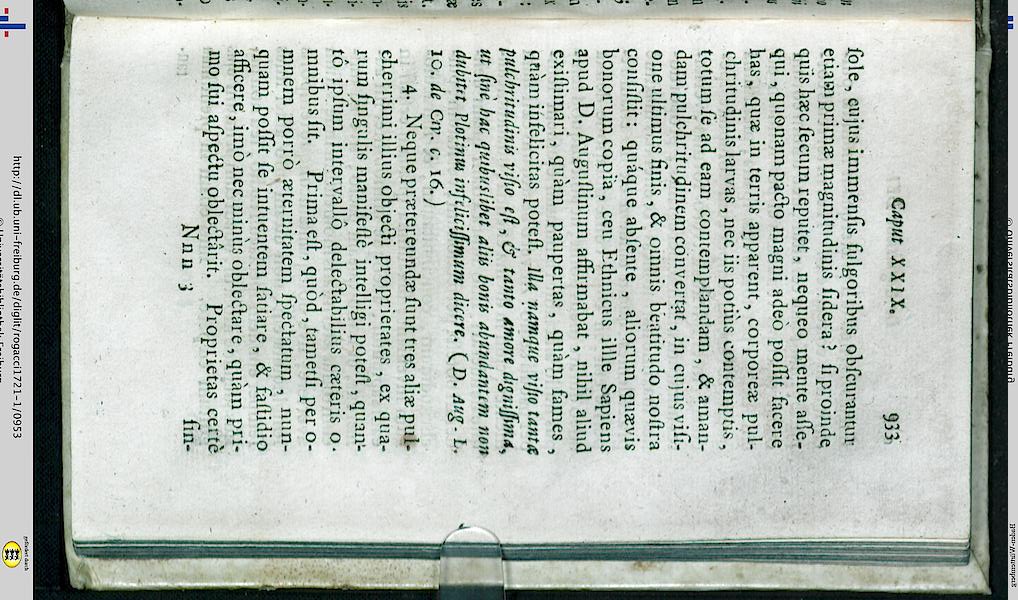 Caput XXIX. 933
ſole, cujus immenſis fulgoribus obſcurantur
etiam primæ magnitudinis ſidera? ſi proinde
quis hæc ſecum reputet, nequeo mente aſſe-
qui, quonam pacto magni adeò poſſit facere
has, quæ in terris apparent, corporeæ pul-
chritudinis larvas, nec iis potiùs contemptis,
totum ſe ad eam contemplandam, & aman-
dam pulchritudinem convertat, in cujus viſi-
one ultimus finis, & omnis beatitudo noſtra
conſiſtit: quáque abſente, aliorum quævis
bonorum copia, ceu Ethnicus ille Sapiens
apud D. Auguſtinum affirmabat, nihil aliud
exiſtimari, quàm paupertas, quàm fames,
quàm infelicitas poteſt. Illa namque viſio tantæ
pulchritudinis viſio eſt, & tanto amore digniſſima,
ut ſinè hac quibuslibet aliis bonis abundantem non
dubitet Plotinus infeliciſſimum dicere. (D. Aug. L.
10. de Civ. c. 16.)
4. Neque prætereundæ ſunt tres aliæ pul-
cherrimi illius objecti proprietates, ex qua-
rum ſingulis manifeſtè intelligi poteſt, quan-
tô ipſum intervallô delectabilius cæteris o-
mnibus ſit. Prima eſt, quòd, tametſi per o-
mnem porrò æternitatem ſpectatum, nun-
quam poſſit ſe intuentem ſatiare, & faſtidio
afficere, imò nec minùs oblectare, quàm pri-
mo ſui aſpectu oblectârit. Proprietas certè
Nnn 3 ſin-
http://dl.ub.uni-freiburg.de/diglit/rogacci1721-1/0953
© Universitätsbibliothek Freiburg
gefördert durch